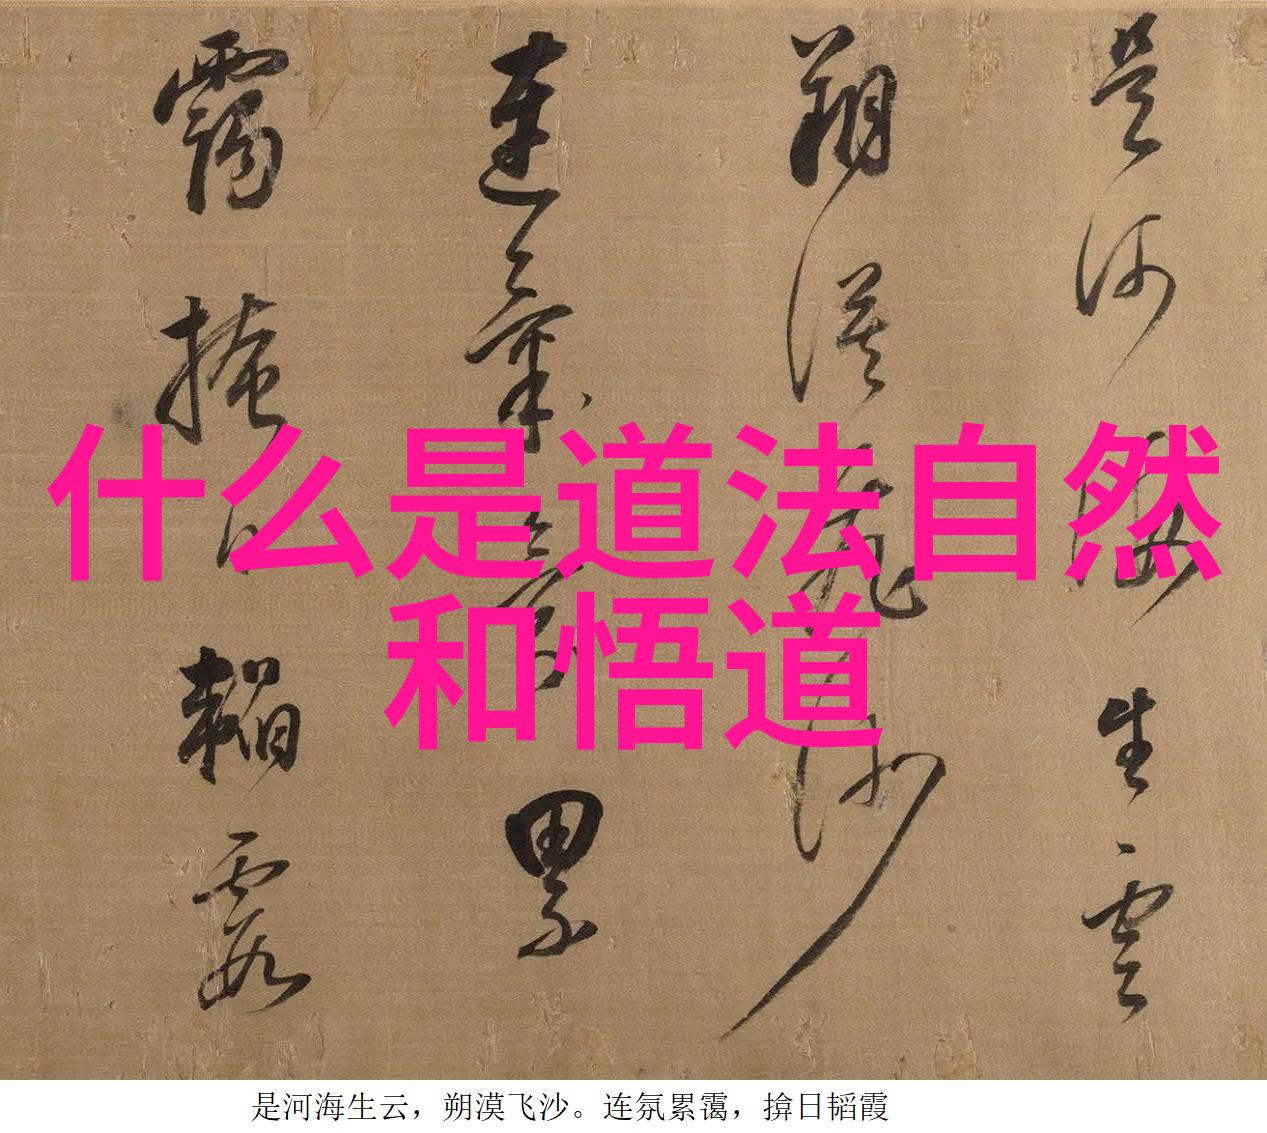 是河海生云
朔漠飞沙
连氛累
霭掩日韬霞
什么是道法自然
和悟道
是河海生云，朔漠飞沙。连氛累霭，揜日韬霞